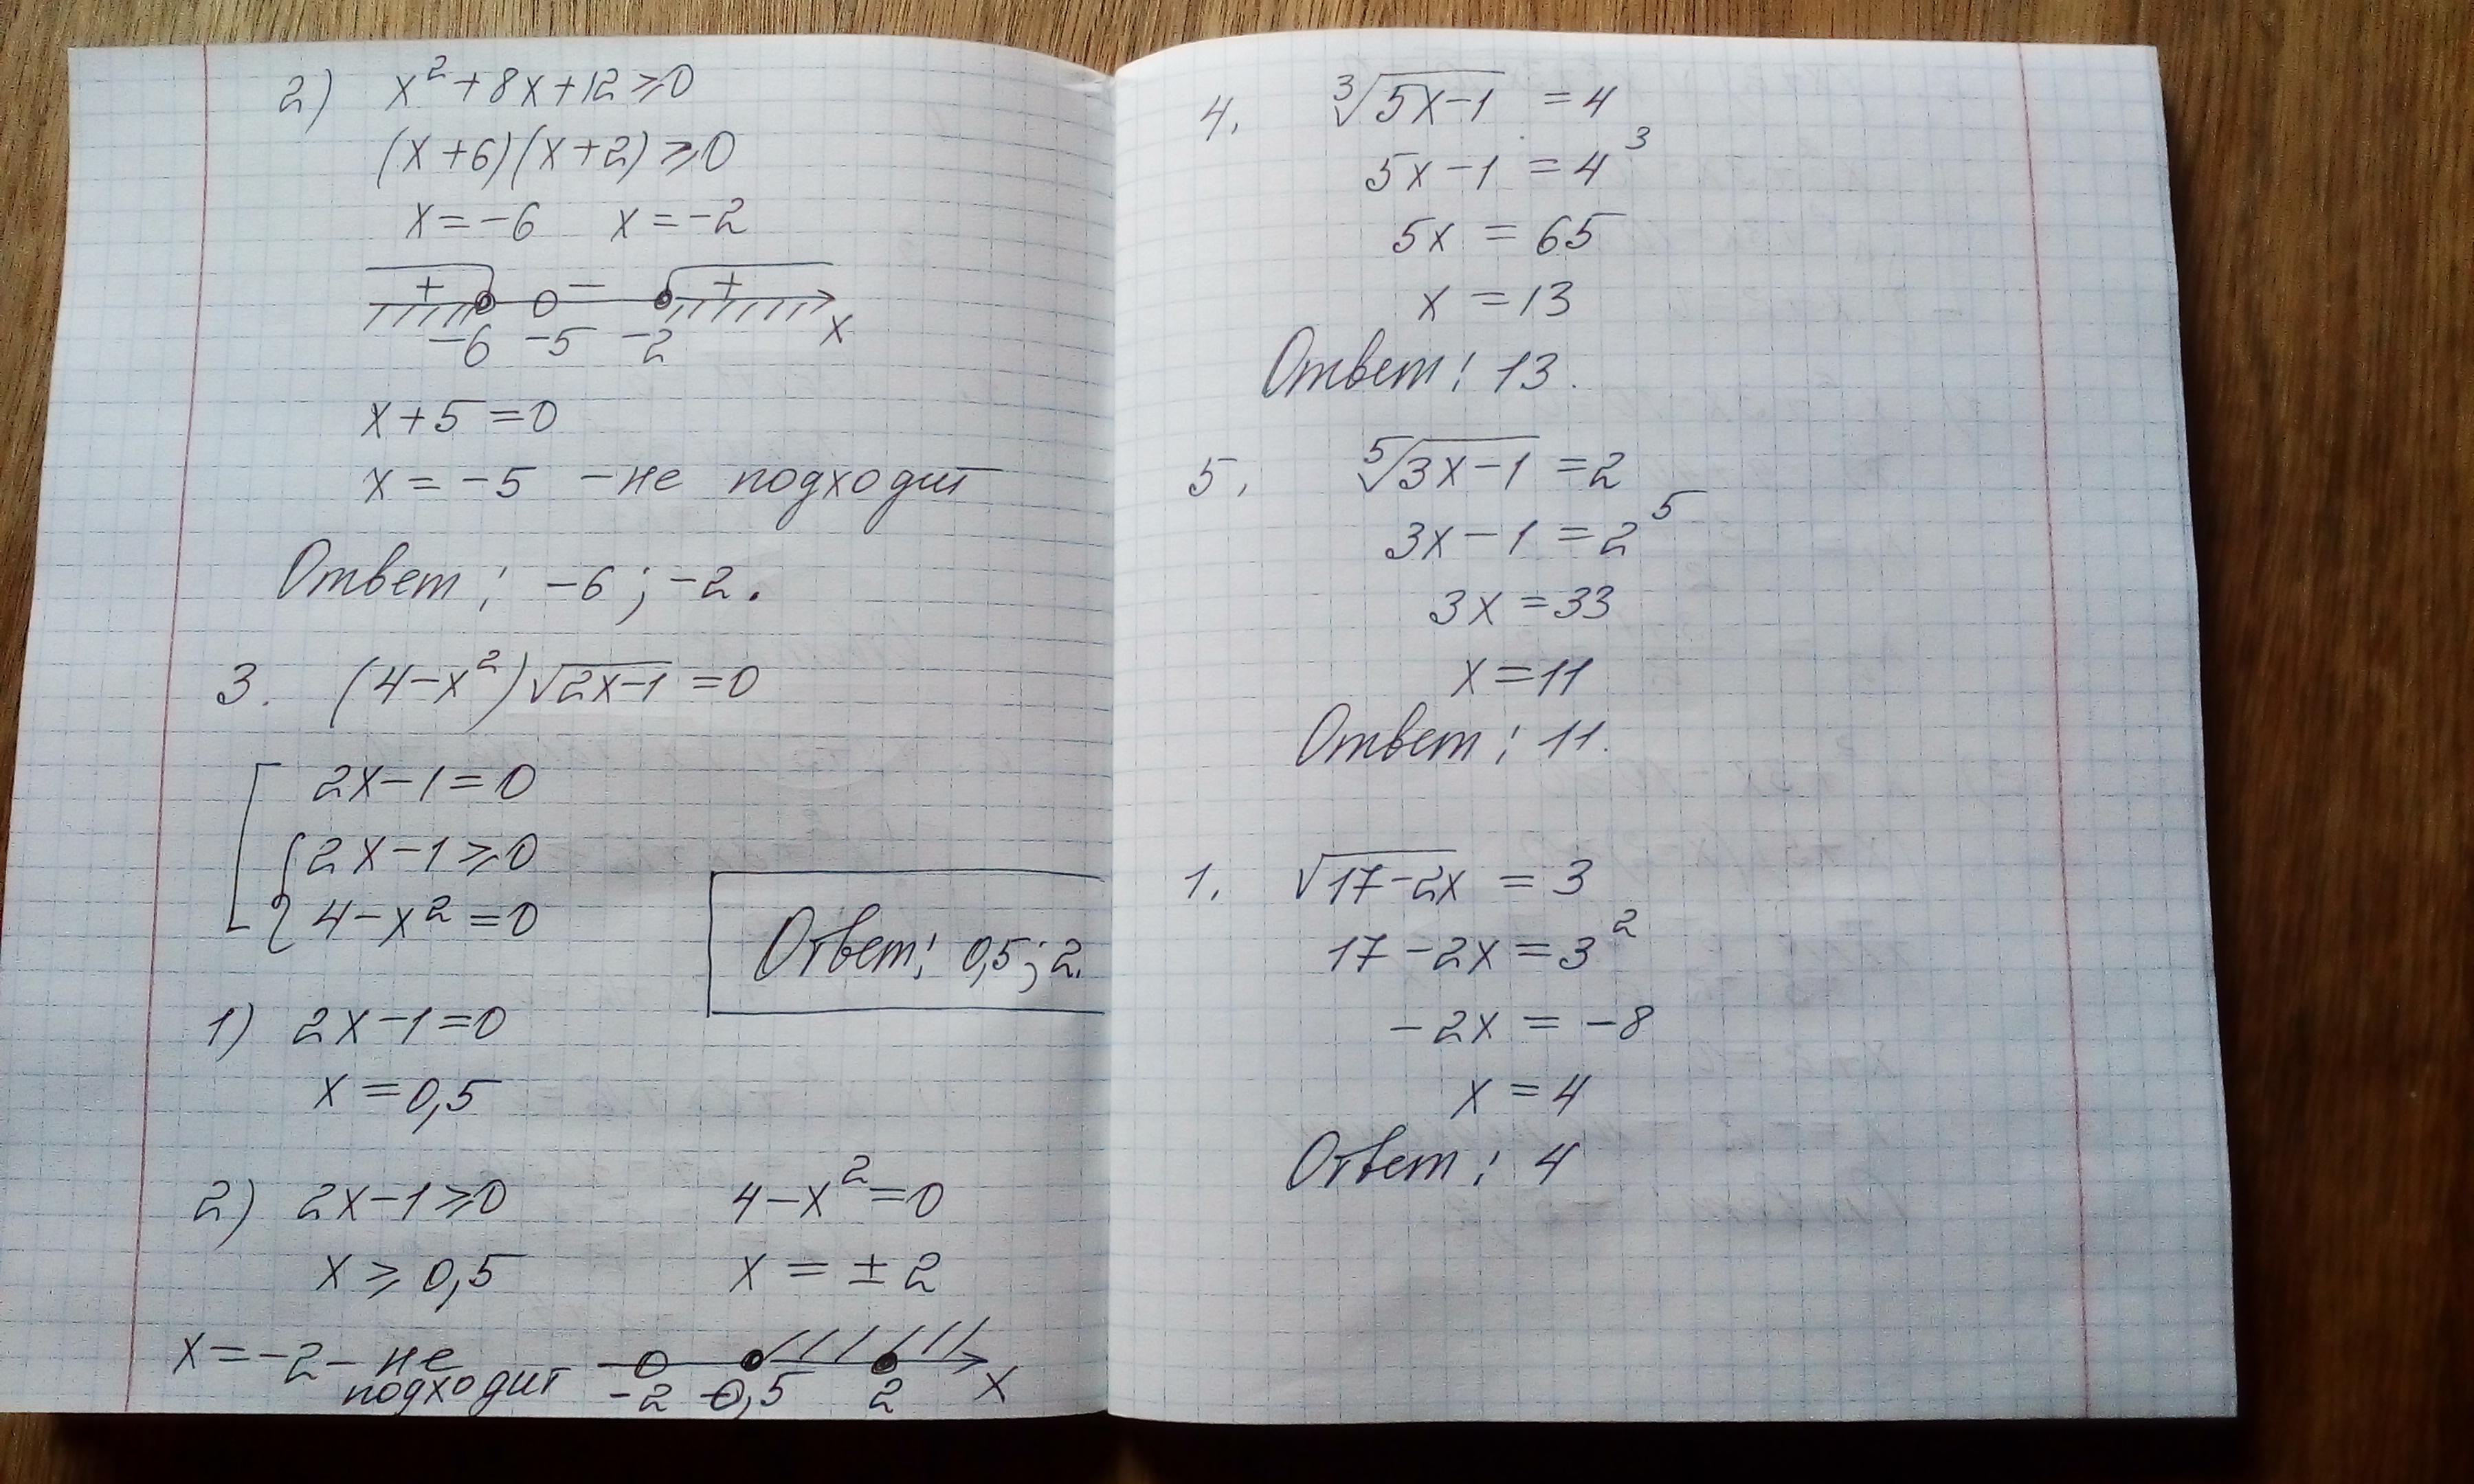 2) x² + 8x + 12 ⩾ 0
(x + 6)(x + 2) ⩾ 0
x = −6 x = −2
+ − +
−6 −5 −2 x
x + 5 = 0
x = −5 − не подходит
Ответ: −6; −2.
3. (4 − x²)√(2x−1) = 0
2x − 1 = 0
2x − 1 ⩾ 0
4 − x² = 0
Ответ: 0,5; 2.
1) 2x − 1 = 0
x = 0,5
2) 2x − 1 ⩾ 0 4 − x² = 0
x ⩾ 0,5 x = ± 2
x = −2 − не
подходит
−2 0,5 2 x
4. ∛(5x−1) = 4
5x − 1 = 4³
5x = 65
x = 13
Ответ: 13.
5. ⁵√(3x−1) = 2
3x − 1 = 2⁵
3x = 33
x = 11
Ответ: 11.
1. √(17−2x) = 3
17 − 2x = 3²
−2x = −8
x = 4
Ответ: 4